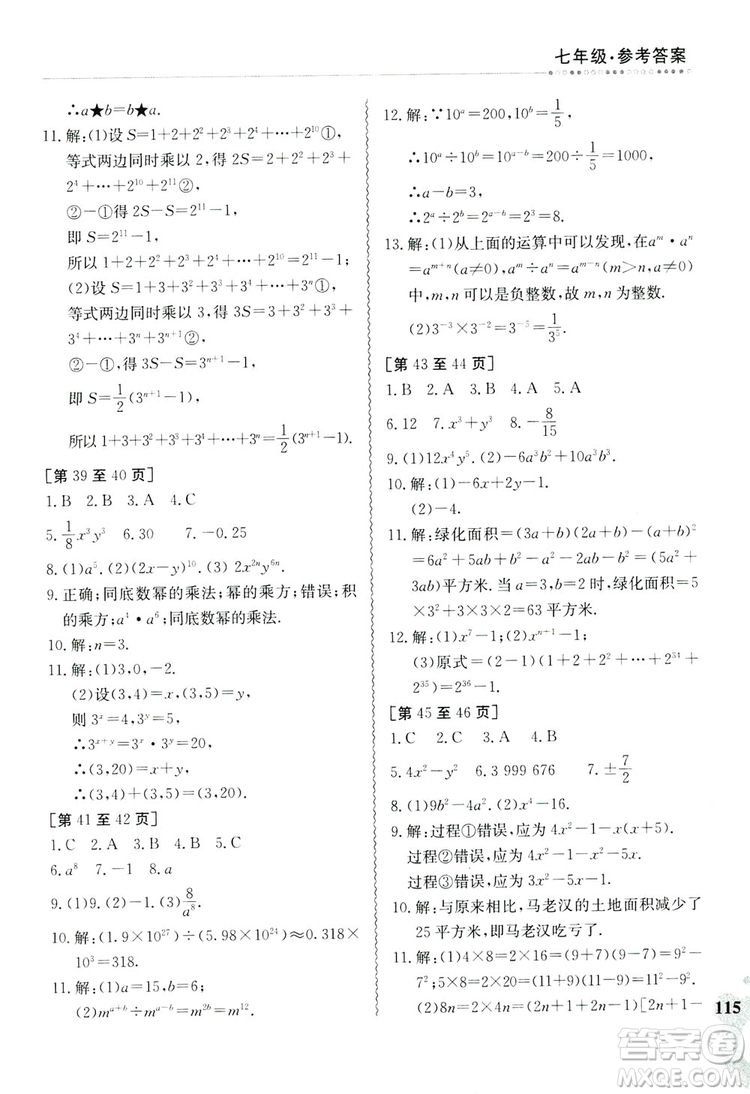 七年级·参考答案
∴a★b=b★a.
11. 解:(1)设 S=1+2+2²+2³+2⁴+…+2¹⁰①,
等式两边同时乘以 2,得 2S=2+2²+2³+2⁴
+…+2¹⁰+2¹¹②,
②-①得 2S-S=2¹¹-1,
即 S=2¹¹-1,
所以 1+2+2²+2³+2⁴+…+2¹⁰=2¹¹-1;
(2)设 S=1+3+3²+3³+3⁴+…+3ⁿ①,
等式两边同时乘以 3,得 3S=3+3²+3³+
3⁴+…+3ⁿ+3ⁿ⁺¹②,
②-①得 3S-S=3ⁿ⁺¹-1,
即 S=1/2(3ⁿ⁺¹-1),
所以 1+3+3²+3³+3⁴+…+3ⁿ=1/2(3ⁿ⁺¹-1).
[第 39 至 40 页]
1. B 2. B 3. A 4. C
5. 1/8x³y³ 6. 30 7. -0.25
8. (1)a⁵. (2)(2x-y)¹⁰. (3)2x²ⁿy⁶ⁿ.
9. 正确;同底数幂的乘法;幂的乘方;错误;积
的乘方;a⁴·a⁶;同底数幂的乘法.
10. 解:n=3.
11. 解:(1)3,0,-2.
(2)设(3,4)=x,(3,5)=y,
则 3ˣ=4,3ʸ=5,
∴3ˣ⁺ʸ=3ˣ·3ʸ=20,
∴(3,20)=x+y,
∴(3,4)+(3,5)=(3,20).
[第 41 至 42 页]
1. C 2. A 3. B 4. C 5. A
6. a⁸ 7. -1 8. a
9. (1)9. (2)-a⁴. (3)8/a⁸.
10. 解:(1.9×10²⁷)÷(5.98×10²⁴)≈0.318×
10³=318.
11. 解:(1)a=15,b=3.
(2)mᵃ⁺ᵇ÷mᵃ⁻ᵇ=m¹⁸÷m¹²=m⁶.
12. 解:∵10ᵃ=200,10ᵇ=1/5,
∴10ᵃ÷10ᵇ=10ᵃ⁻ᵇ=200÷1/5=1000,
∴a-b=3,
∴2ᵃ÷2ᵇ=2ᵃ⁻ᵇ=2³=8.
13. 解:(1)从上面的运算中可以发现,在aᵐ·aⁿ
=aᵐ⁺ⁿ(a≠0),aᵐ÷aⁿ=aᵐ⁻ⁿ(m>n,a≠0)
中,m,n 可以是负整数,故 m,n 为整数.
(2)3⁻³×3⁻²=3⁻⁵=1/3⁵.
[第 43 至 44 页]
1. B 2. A 3. B 4. A 5. A
6. 12 7. x³+y³ 8. -8/15
9. (1)12x⁴y⁵. (2)-6a³b²+10a³b³.
10. 解:(1)-6x²+18x-4.
(2)-4.
11. 解:绿化面积=(3a+b)(2a+b)-(a+b)²
=6a²+5ab+b²-a²-2ab-b²=(5a²+
3ab)平方米. 当 a=3,b=2 时,绿化面积=5
×3²+3×3×2=63 平方米.
12. 解:(1)x⁷-1. (2)xⁿ⁺¹-1.
(3)原式=(2-1)(1+2+2²+…+2³⁴+
2³⁵)=2³⁶-1.
[第 45 至 46 页]
1. C 2. C 3. A 4. C
5. 4x²-y² 6. 3 999 676 7. ±7/2
8. (1)9b²-4a². (2)x⁴-16.
9. 解:过程①错误,应为 4x²-1-(x²-25).
过程②错误,应为 4x²-1-x²+25.
过程③错误,应为 3x²+24.
10. 解:与原来相比,马老汉的土地面积减少了
25 平方米. 即马老汉吃亏了.
11. 解:(1)4×8=2×16=(9+7)(9-7)=9²-
7²;5×8=2×20=(11+9)(11-9)=11²-9².
(2)8n=2×4n=[2n+1+(2n-1)][2n+1-
115
答案卷